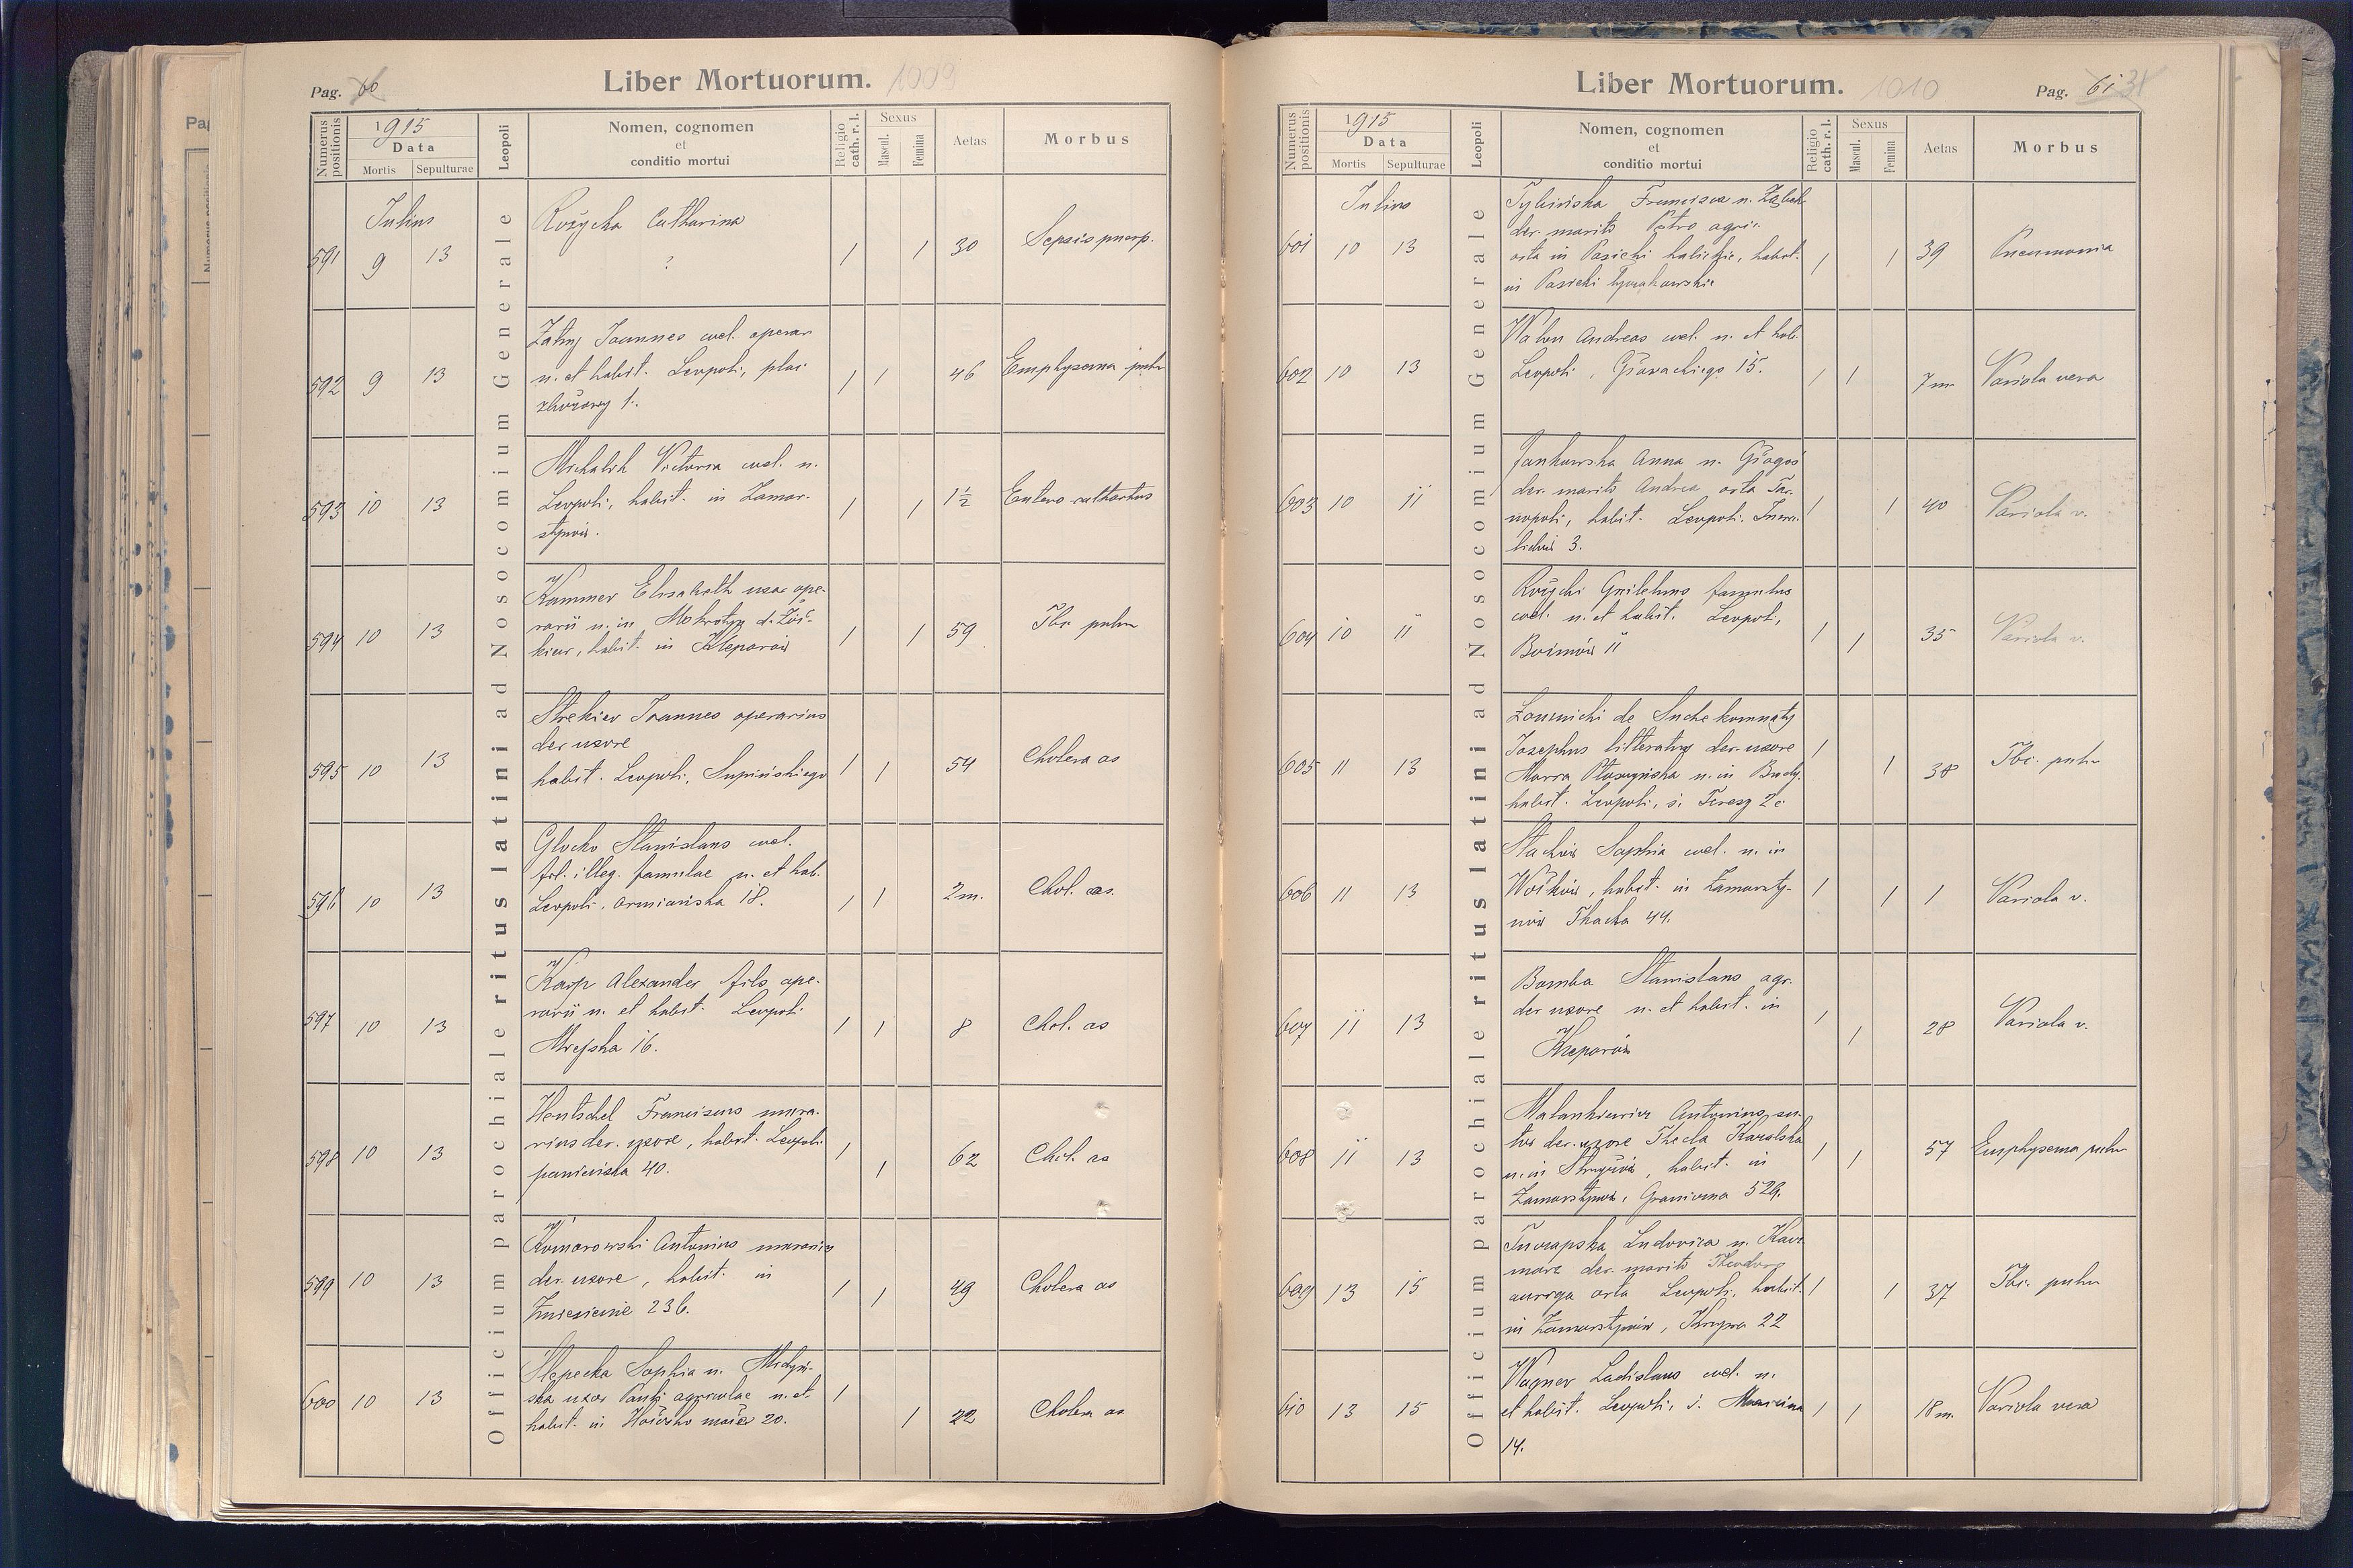 Pag. 60
Liber Mortuorum. 1009
Numerus positionis
1915
Data
Mortis
Sepulturae
Leopoli
Nomen, cognomen
et
conditio mortui
Religio cath. r. l.
Sexus
Mascul.
Femina
Aetas
Morbus
Officium parochiale ritus latini ad Nosocomium Generale
Julius
591 9 13 Rożycka Catharina 1 1 30 Sepsis puerp.
?
592 9 13 Joannes cael. operar.
n. et habit. Leopoli, plac 1 1 46 Emphysema pulm
zbożowy 1.
593 10 13 Michalik Victoria cael. n.
Leopoli, habit. in Zamar- 1 1 1½ Entero-catharhus
stynów.
594 10 13 Kammer Elisabeth uxor ope-
rarii n. in Mokrotyn d. Żół- 1 1 59 Tbc pulm
kiew, habit. in Kleparów
595 10 13 Joannes operarius
der. uxore
habit. Leopoli, Supińskiego 1 1 54 Cholera as
596 10 13 Stanislaus cael.
fil. illeg. famulae n. et hab.
Leopoli, Armiańska 18. 1 1 2m. Chol. as.
597 10 13 Karp Alexander fils ope-
rarii n. et habit. Leopoli 1 1 8 Chol. as
16.
598 10 13 Hentschel Franciscus mura-
rius der. uxore, habit. Leopoli 1 1 62 Chol. as
panieńska 40.
599 10 13 Komorowski Antonius murarius
der. uxore, habit. in 1 1 49 Cholera as
Zniesienie 236.
600 10 13 Sophia n.
ska uxor Pauli agricolae n. et 1 1 22 Cholera as
habit. in 20.
Liber Mortuorum. 1010
Pag. 61 31
Numerus positionis
1915
Data
Mortis
Sepulturae
Leopoli
Nomen, cognomen
et
conditio mortui
Religio cath. r. l.
Sexus
Mascul.
Femina
Aetas
Morbus
Officium parochiale ritus latini ad Nosocomium Generale
Julius
601 10 13 Francisca n.
der. marito Petro agri.
orta in Pasieki halickie, habit. 1 1 39 Pneumonia
in Pasieki łyczakowskie
602 10 13 Andreas cael. n. et hab.
Leopoli, Głowackiego 15. 1 1 7m. Variola vera
603 10 11 Jankowska Anna n.
der. marito Andrea orta Tar-
nopoli, habit. Leopoli. Inwa- 1 1 40 Variola v.
lidów 3.
604 10 11 Rożycki Guilelmus famulus
cael. n. et habit. Leopoli, 1 1 35 Variola v.
Boimów 11
605 11 13 de Suchekomnaty
Josephus litteratus der. uxore
Maria n. in 1 1 38 Tbc. pulm
habit. Leopoli, ś. Teresy 2c
606 11 13 Stachów Sophia cael. n. in
habit. in Zamarsty- 1 1 1 Variola v.
nów Tkacka 44.
607 11 13 Bomba Stanislaus agr.
der uxore n. et habit. in 1 1 28 Variola v.
608 11 13 Malankiewicz Antonius su-
tor der. uxore Thecla
n. in habit. in 1 1 57 Emphysema pulm
Zamarstynów, Graniczna 529.
609 13 15 Ludovica n.
der. marito Theodoro
auriga orta Leopoli, habit. 1 1 37 Tbc. pulm
in Zamarstynów, 22
610 13 15 Wagner Ladislaus cael. n.
et habit. Leopoli, ś. Marcina 1 1 18m. Variola vera
14.